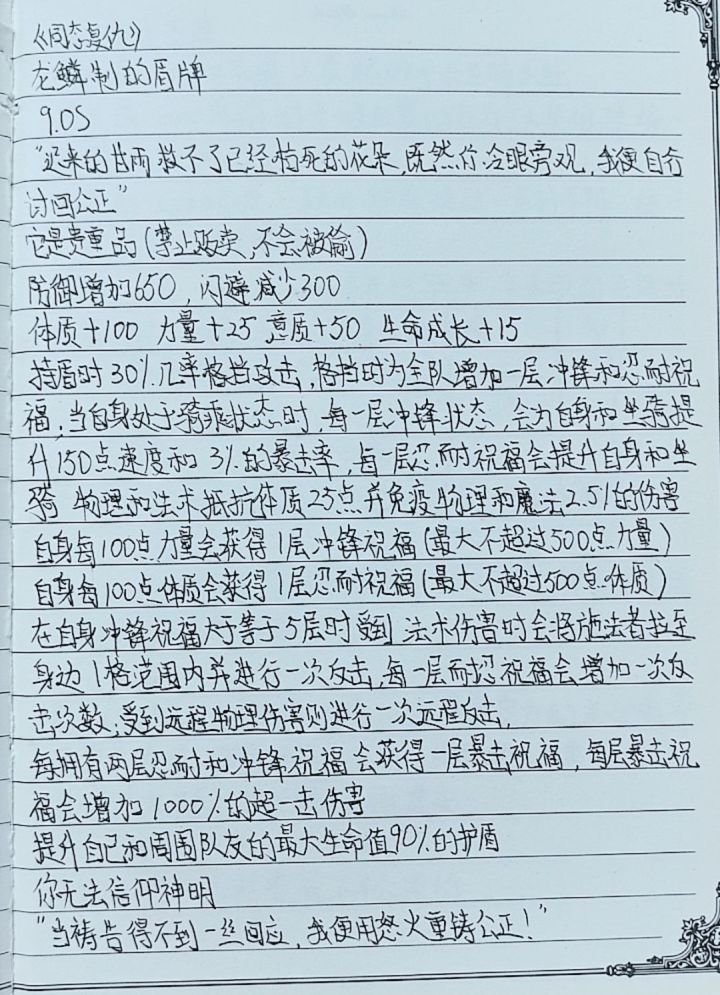 《同态复仇》
龙鳞制的盾牌
9.0S
“迟来的甘雨救不了已经枯死的花朵,既然你冷眼旁观,我便自行
讨回公正”
它是贵重品(禁止贩卖,不会被偷)
防御增加650,闪避减少300
体质+100 力量+25 意质+50 生命成长+15
持盾时30%几率格挡攻击,格挡时为全队增加一层冲锋和忍耐祝
福,当自身处于骑乘状态时,每一层冲锋状态,会为自身和坐骑提
升150点速度和3%的暴击率,每一层忍耐祝福会提升自身和坐
骑 物理和法术抵抗体质25点并免疫物理和魔法2.5%的伤害
自身每100点力量会获得1层冲锋祝福(最大不超过500点力量)
自身每100点体质会获得1层忍耐祝福(最大不超过500点体质)
在自身冲锋祝福大于等于5层时受到 法术伤害时会将施法者拉至
身边1格范围内并进行一次反击,每一层耐忍祝福会增加一次反
击次数,受到远程物理伤害则进行一次远程反击,
每拥有两层忍耐和冲锋祝福会获得一层暴击祝福,每层暴击祝
福会增加1000%的超一击伤害
提升自己和周围队友的最大生命值90%的护盾
你无法信仰神明
“当祷告得不到一丝回应,我便用怒火重铸公正!”